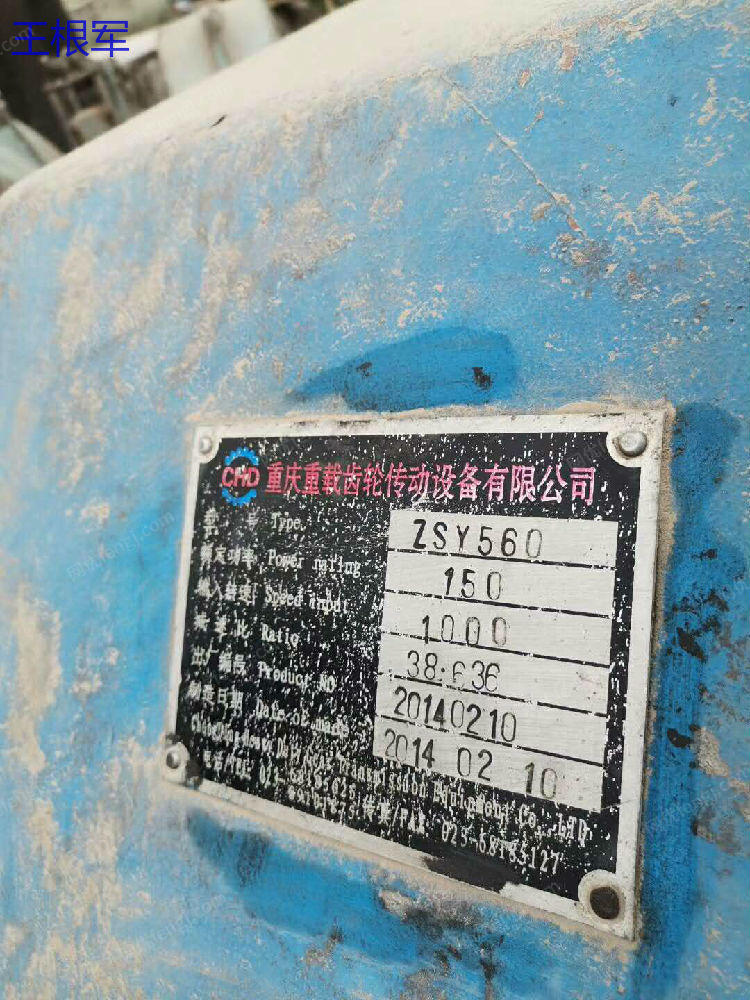 王根军
CHD 重庆重载齿轮传动设备有限公司
型 号 Type. ZSY560
额定功率, Power rating 150
输入转速 Speed input 1000
Ratio 38:636
出厂编号 Product NO 20140210
制造日期 Date of made 2014 02 10
Transmission Equipment Co., LTD
电话/TEL 传真/FAX 023-68185127